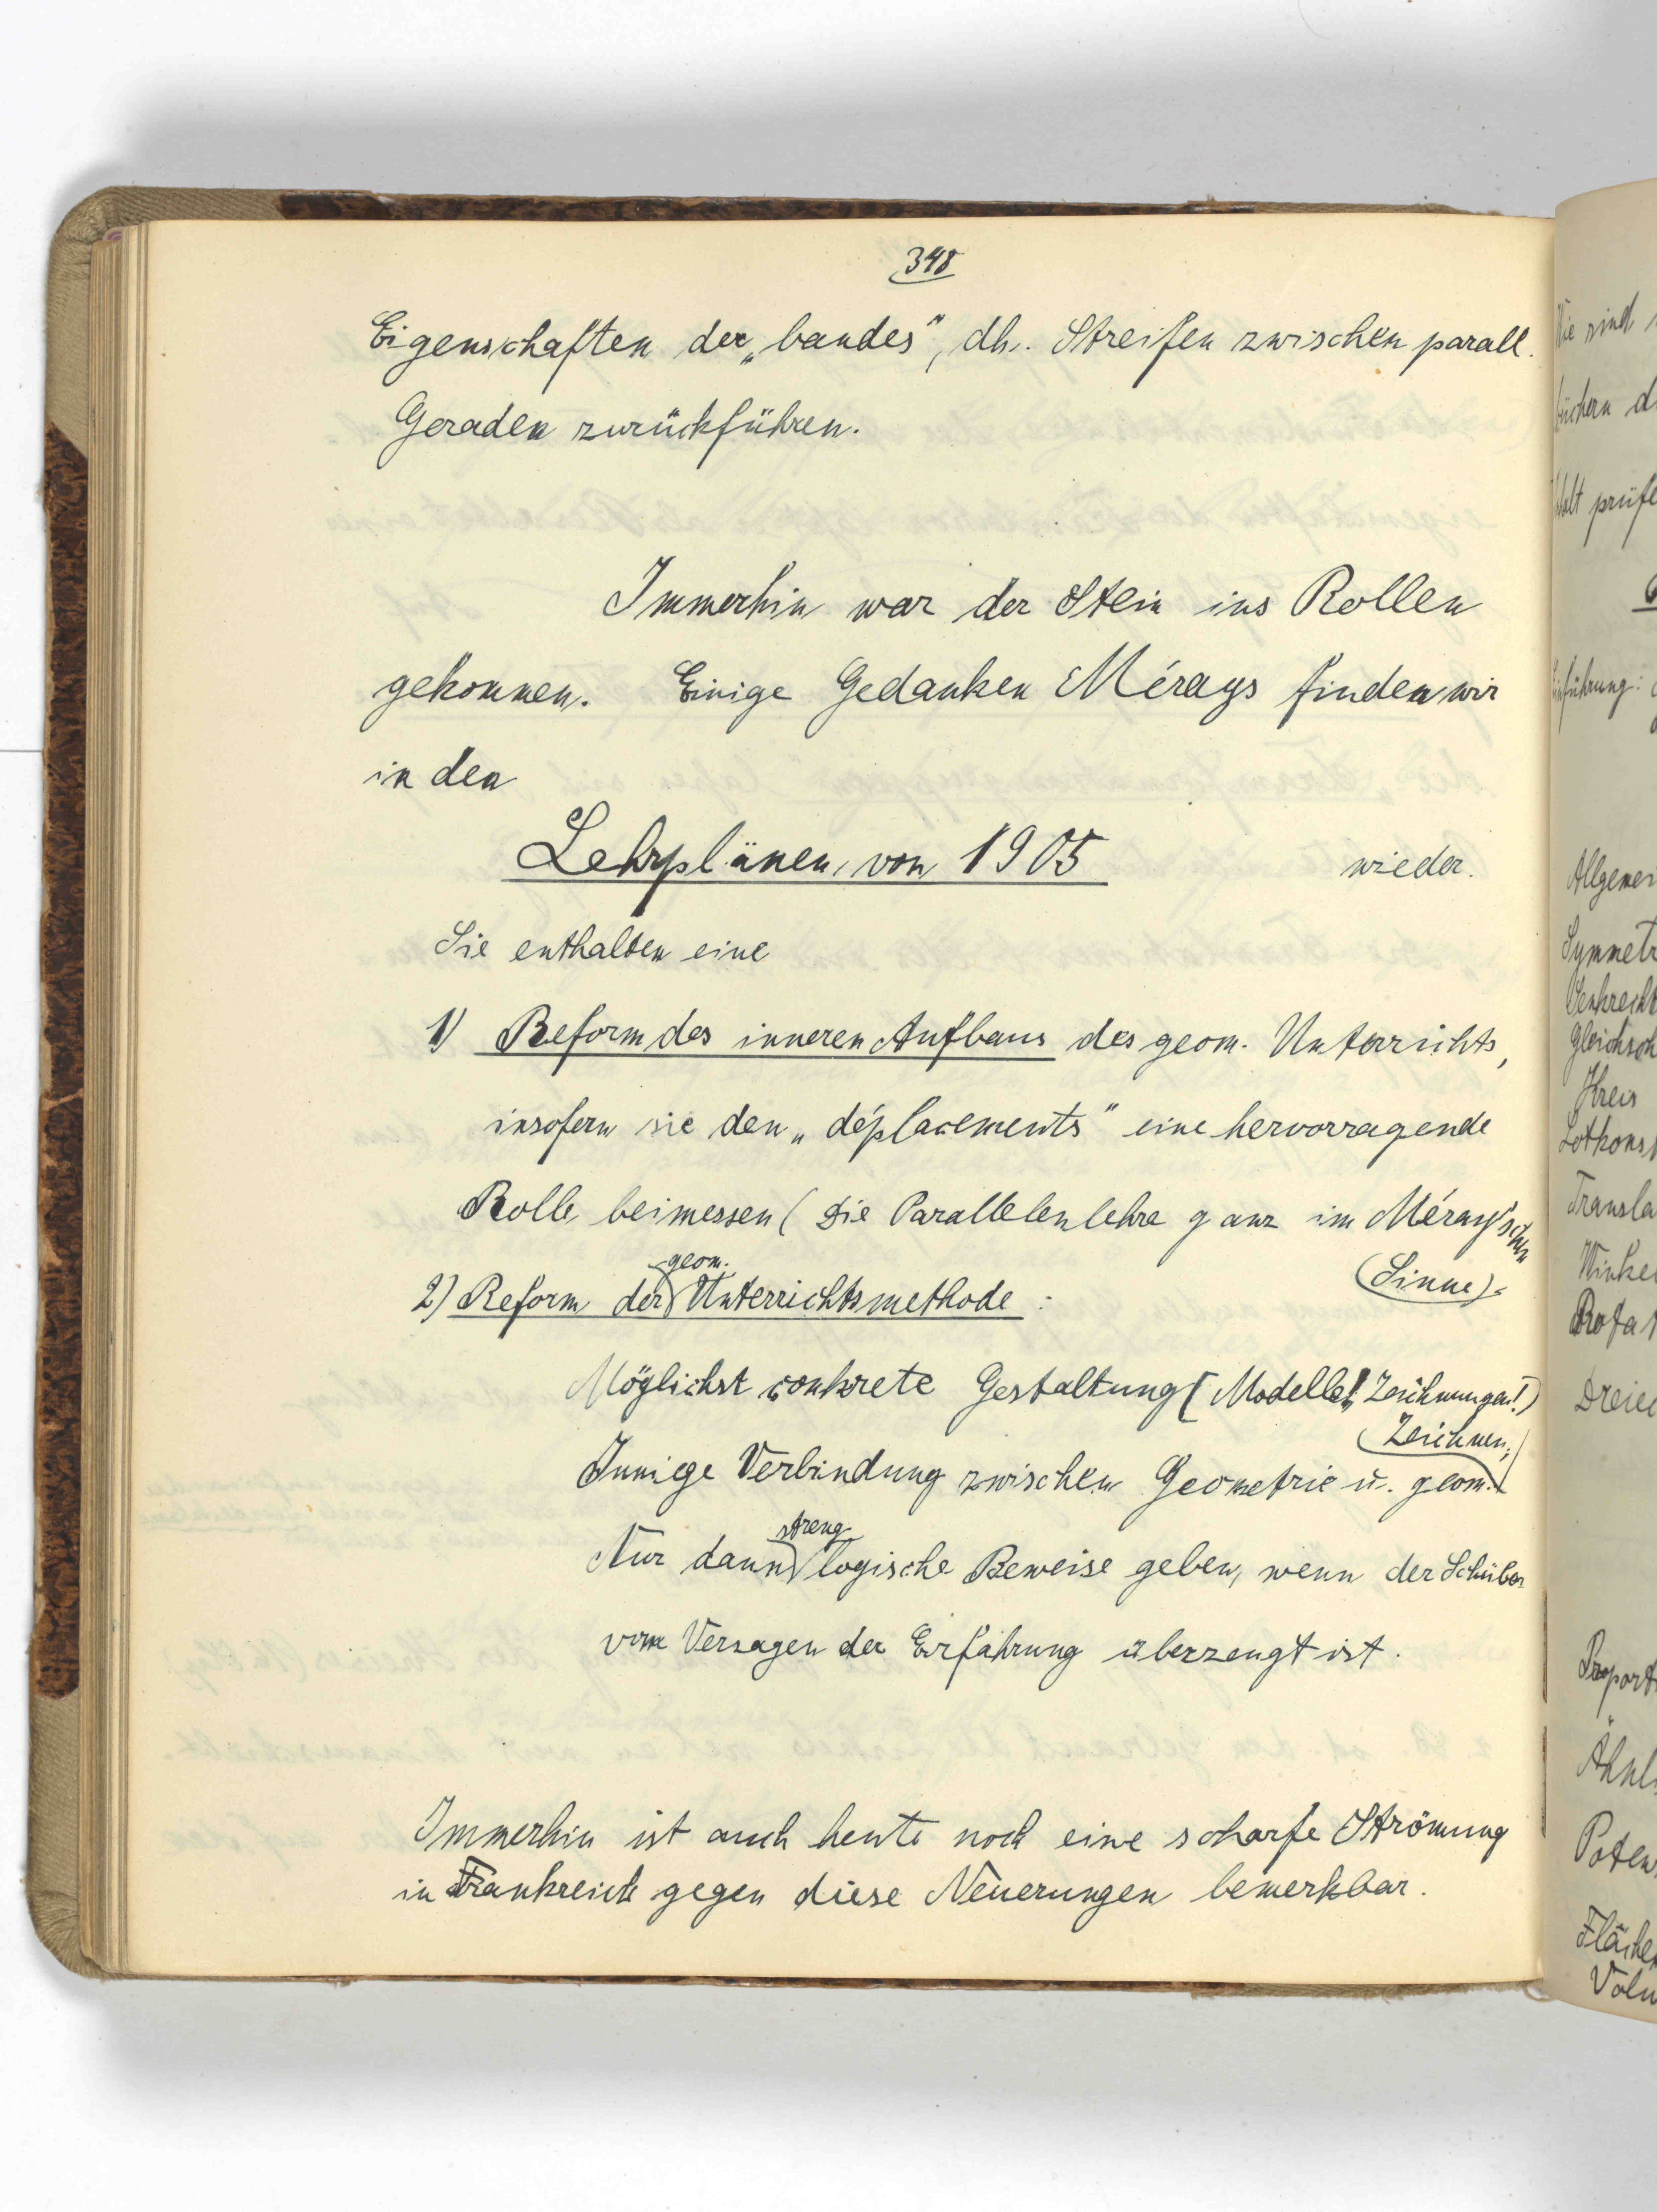 348
Eigenschaften der „bandes", dh. Streifen zwischen parall.
Geraden zurückführen.
Immerhin war der Stein ins Rollen
gekommen. Einige Gedanken Mérays finden wir
in den
Lehrplänen von 1905 wieder.
Sie enthalten eine
1) Reform des inneren Aufbaus des geom. Unterrichts,
insofern sie den „déplacements" eine hervorragende
Rolle beimessen (Die Parallelenlehre ganz im Méray'schen
Sinne).
2) Reform der geom. Unterrichtsmethode:
Möglichst conkrete Gestaltung (Modelle! Zeichnungen!)
Innige Verbindung zwischen Geometrie u. geom.
Zeichnen;
Nur dann streng logische Beweise geben, wenn der Schüler
vom Versagen der Erfahrung überzeugt ist.
Immerhin ist auch heute noch eine scharfe Strömung
in Frankreich gegen diese Neuerungen bemerkbar.
Wie sind
büchern d
prüfe
führung:
Allgemei
Symmetr
Senkrecht
Gleichsch
Kreis
Lotkonst
Transla
Winke
Rotat
Dreiec
Proport
Ähnl
Poten
Fläche
Volu